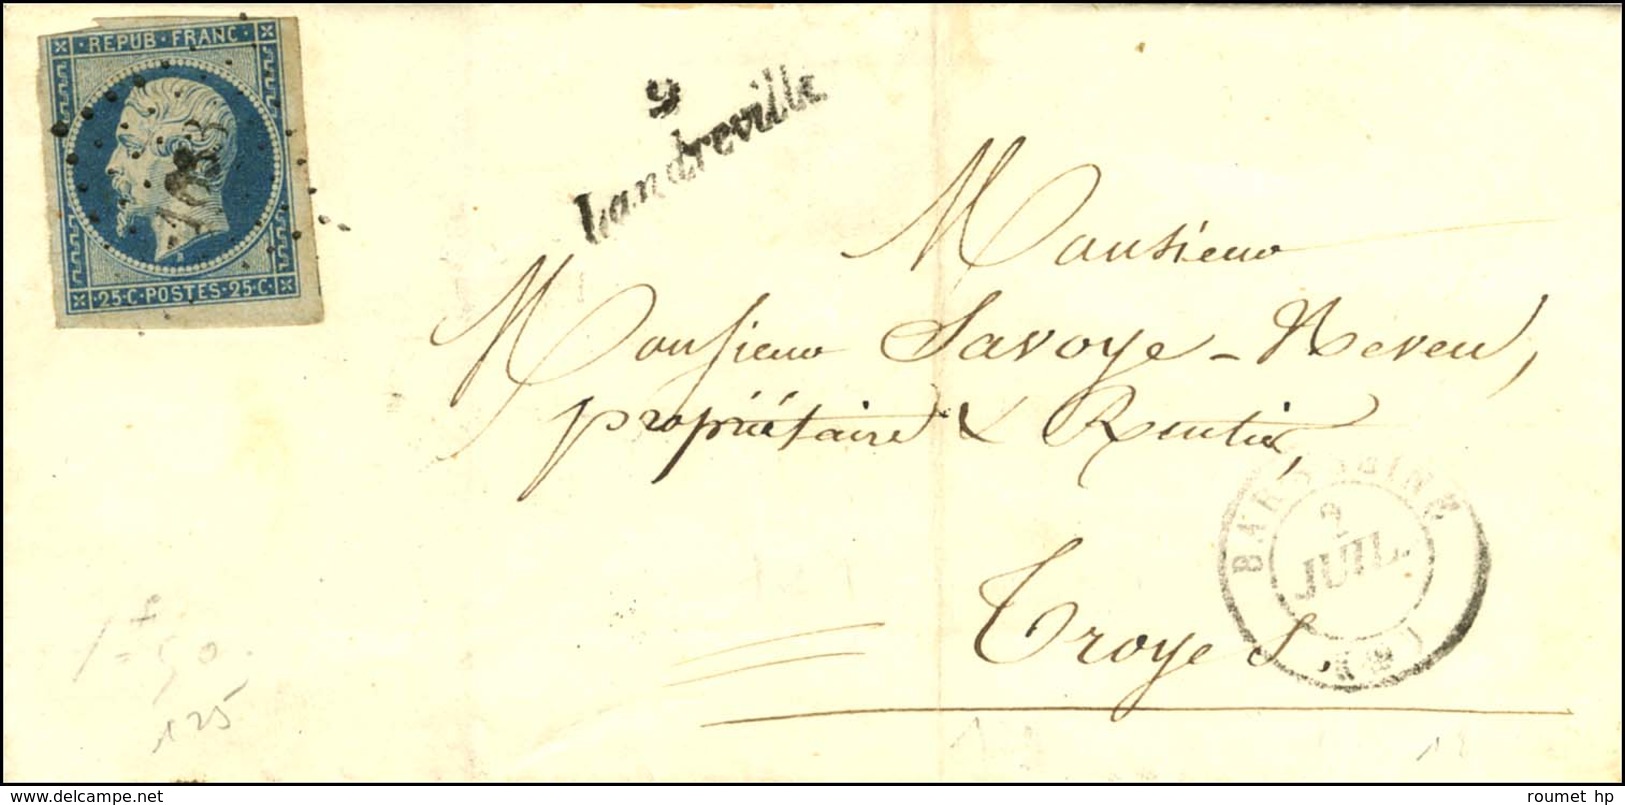 REPUB · FRANC
· 25 · C · POSTES · 25 · C ·
9
Landreville
Monsieur
Monsieur Savoye - Neveu,
propriétaire & Rentier,
Troyes.
BAR-S-SEINE
9
JUIL.
(9)
125
www.delcampe.net
roumet hp